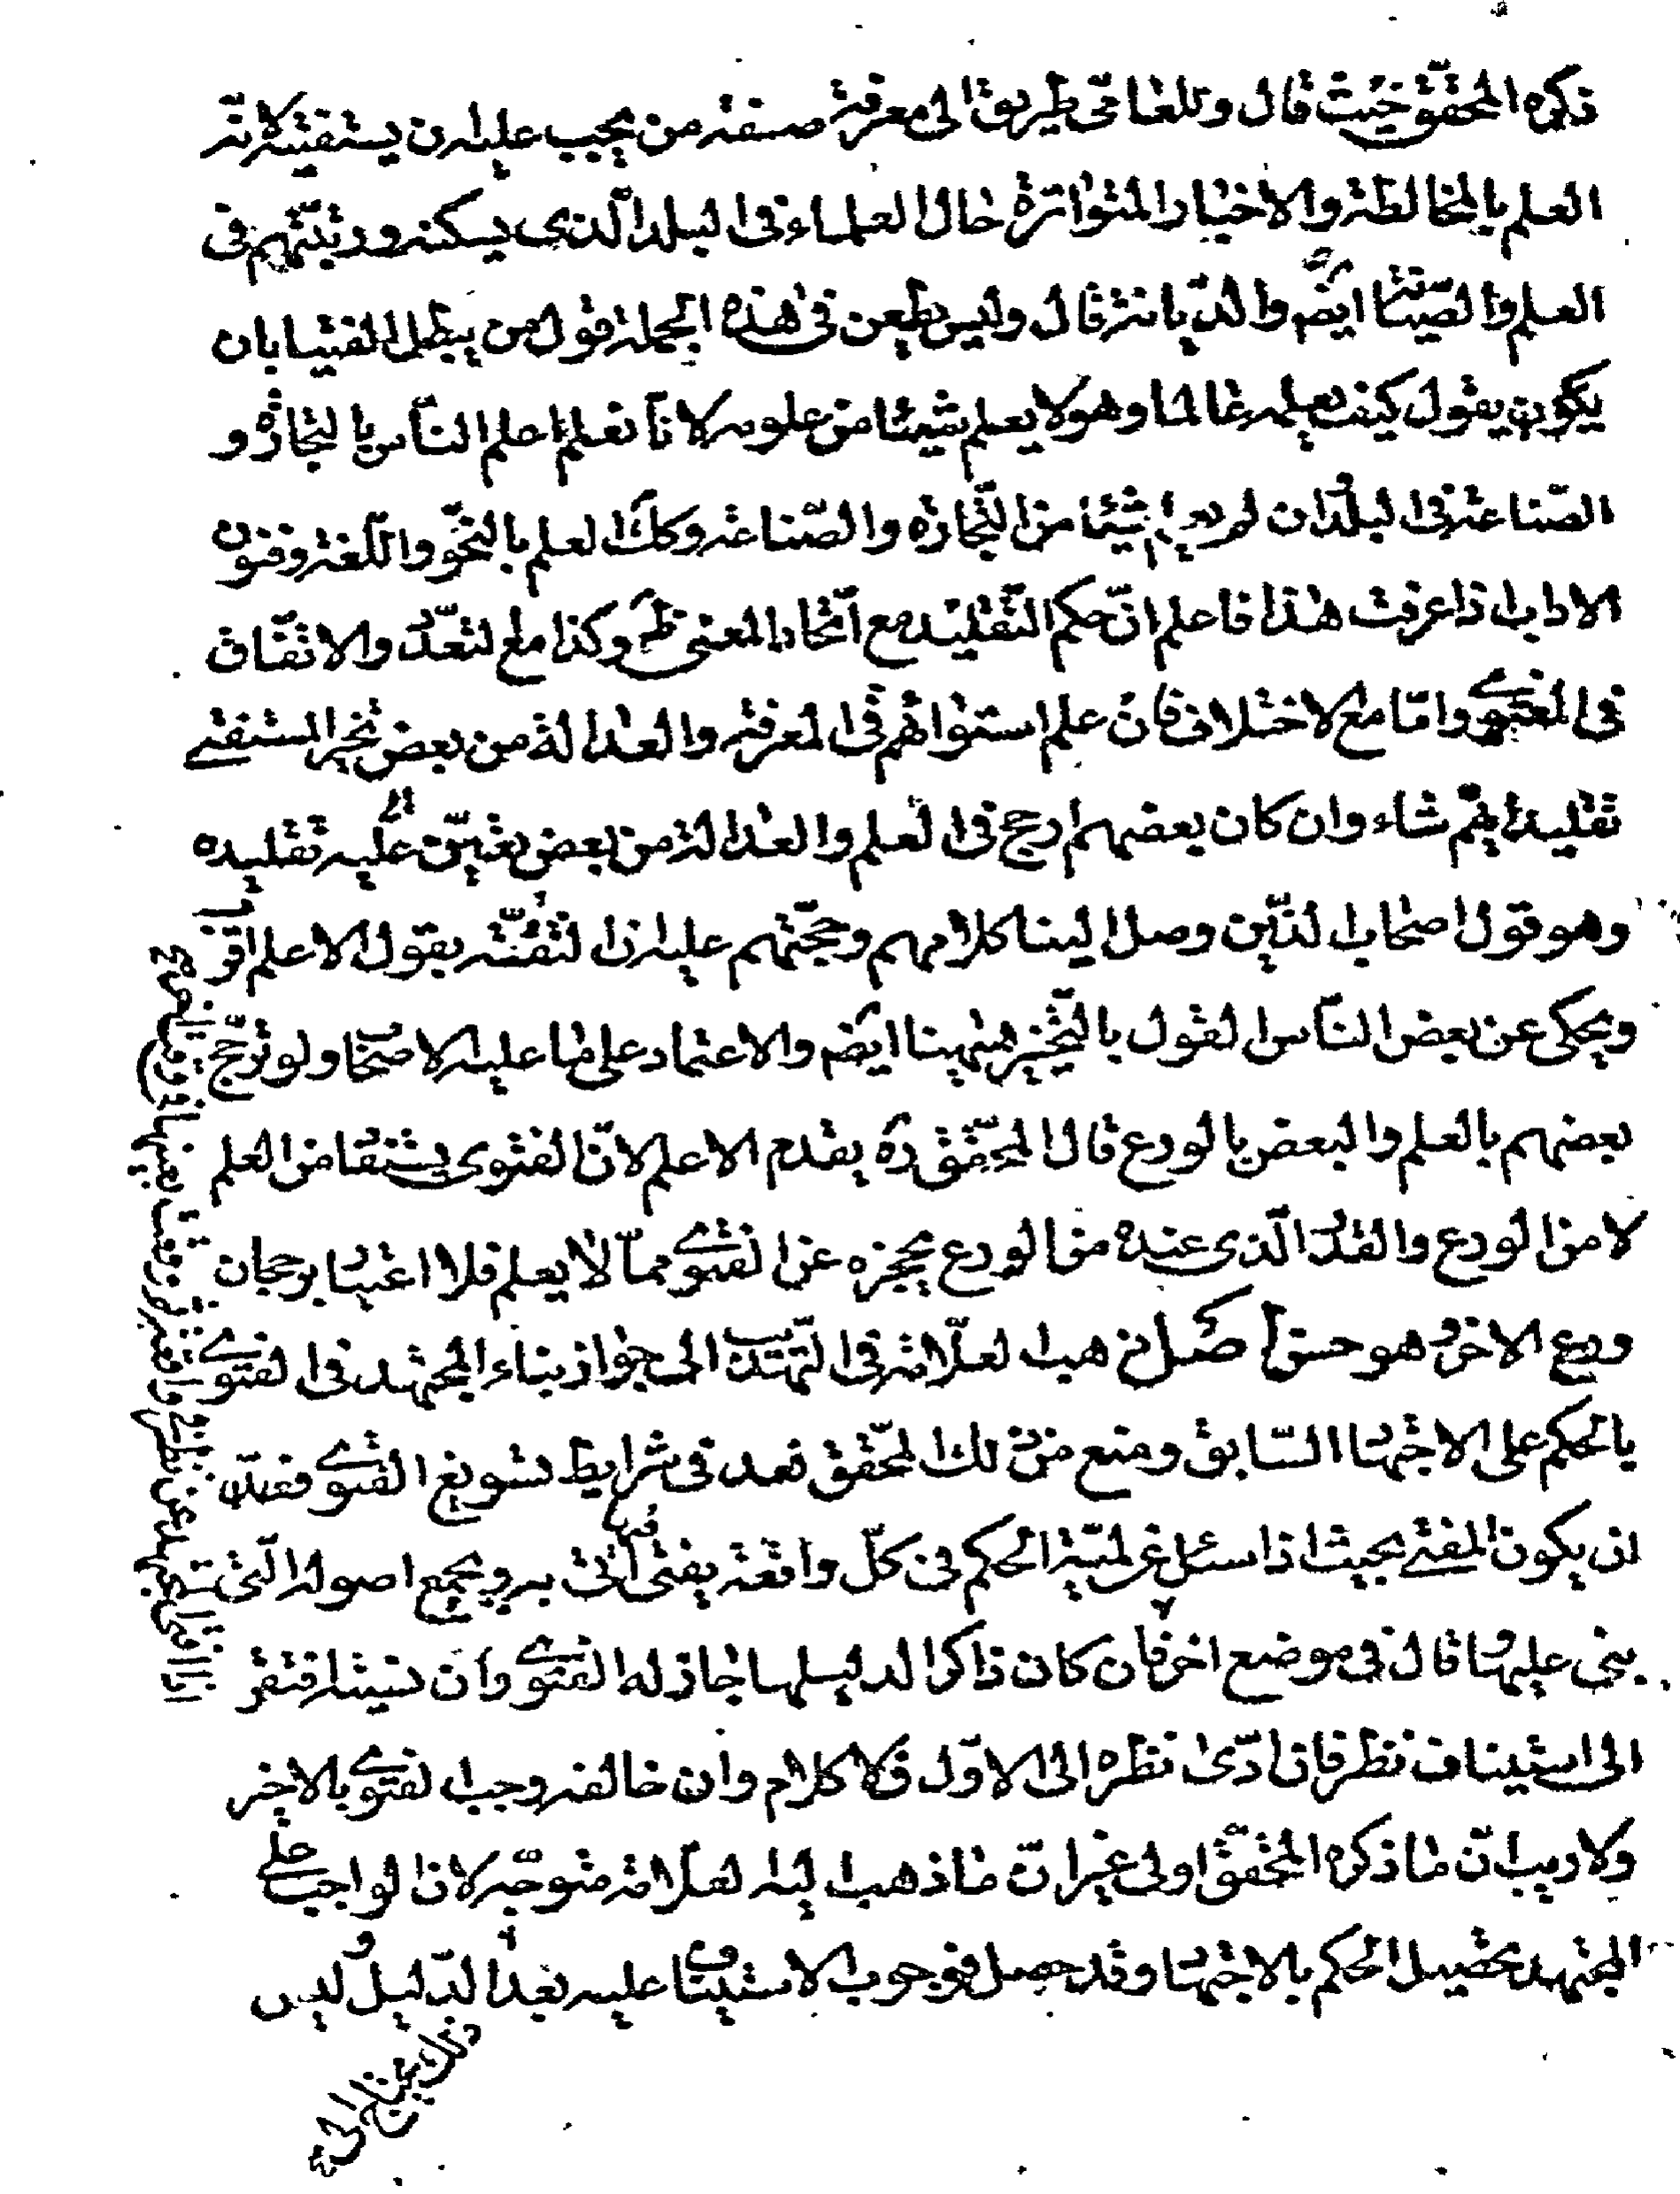 ذكره المحقق حيث قال وللعامى طريق الى معرفة صفة من يجب عليه ان يستفتيه لانه
العلم بالمخالطة والاخبار المتواترة حال العلماء فى البلد الذى يسكنه ورتبتهم فى
العلم والصيانة ايضم والديانة قال وليس يطعن فى هذه الجملة قول من يبطل الفتيا بان
يكون يقول كيف يعلمه عالما وهو لا يعلم شيئا من علومه لانا نعلم اعلم الناس بالتجارة و
الصناعة فى البلدان لم يعلم شيئا من التجارة والصناعة وكك العلم بالنحو واللغة وفنون
الاداب اذا عرفت هذا فاعلم ان حكم التقليد مع اتحاد المعنى ظ وكذا مع التعدد والاتفاق
فى الفتوى واما مع الاختلاف فان علم استوائهم فى المعرفة والعدالة من بعض تخير المستفتى
تقليد ايهم شاء وان كان بعضهم ارجح فى العلم والعدالة من بعض تعين عليه تقليده
وهو قول اصحابنا الذين وصل الينا كلامهم وحجتهم عليه ان الثقة بقول الاعلم اقرب
ويحكى عن بعض الناس القول بالتخيير ههنا ايضم والاعتماد على ما عليه الاصحاب ولو ترجح
بعضهم بالعلم والبعض بالورع قال المحقق ره يقدم الاعلم لان الفتوى يستفاد من العلم
لا من الورع والقدر الذى عنده من الورع يحجزه عن الفتوى مما لا يعلم فلا اعتبار برجحان
ورع الاخر وهو حسن اصل ذهب العلامة فى التهذيب الى جواز بناء المجتهد فى الفتوى
بالحكم على الاجتهاد السابق ومنع من ذلك المحقق فعد فى شرايط تسويغ الفتوى
ان يكون المفتى بحيث اذا سئل عن لمية الحكم فى كل واقعة يفتى فيها اتى به وبجميع اصوله التى
يبنى عليها وقال فى موضع اخر فان كان ذاكرا لدليلها جاز له الفتوى وان نسيه افتقر
الى استيناف نظر فان ادى نظره الى الاول فلا كلام وان خالفه وجب الفتوى بالاخير
ولا ريب ان ما ذكره المحقق اولى غير ان ما ذهب اليه العلامة متوجه لان الواجب على
المجتهد تحصيل الحكم بالاجتهاد وقد حصل فوجوب الاستيناف عليه بعد الدليل وليس